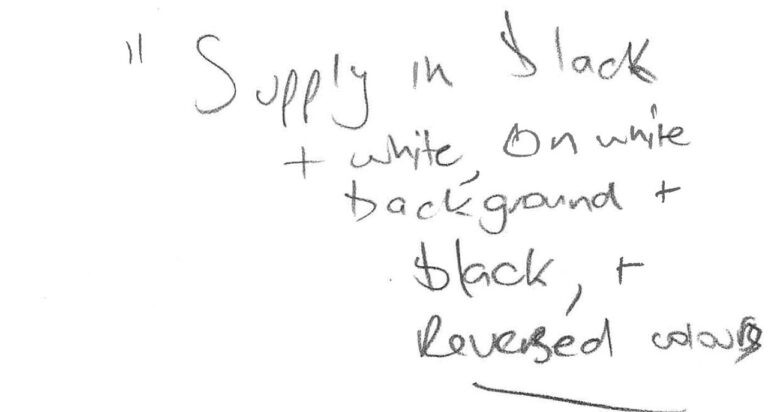 " Supply in black
+ white, On white
background +
black, +
Reversed colours